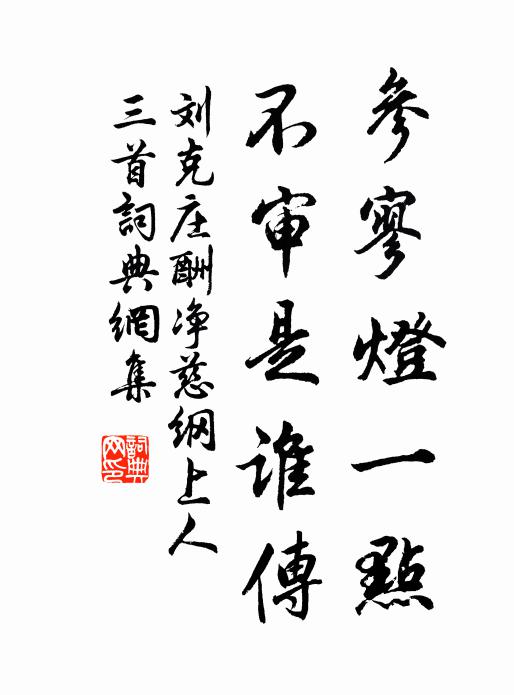 參寥燈一點
不审是誰傳
刘克庄酬净慈纲上人
三首詞典網集
詞典网印